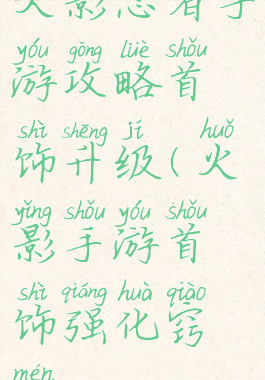 火影忍者手
yóu gōng lüè shǒu
游攻略首
shì shēng jí huǒ
饰升级(火
yǐng shǒu yóu shǒu
影手游首
shì qiáng huà qiào
饰强化窍
mén